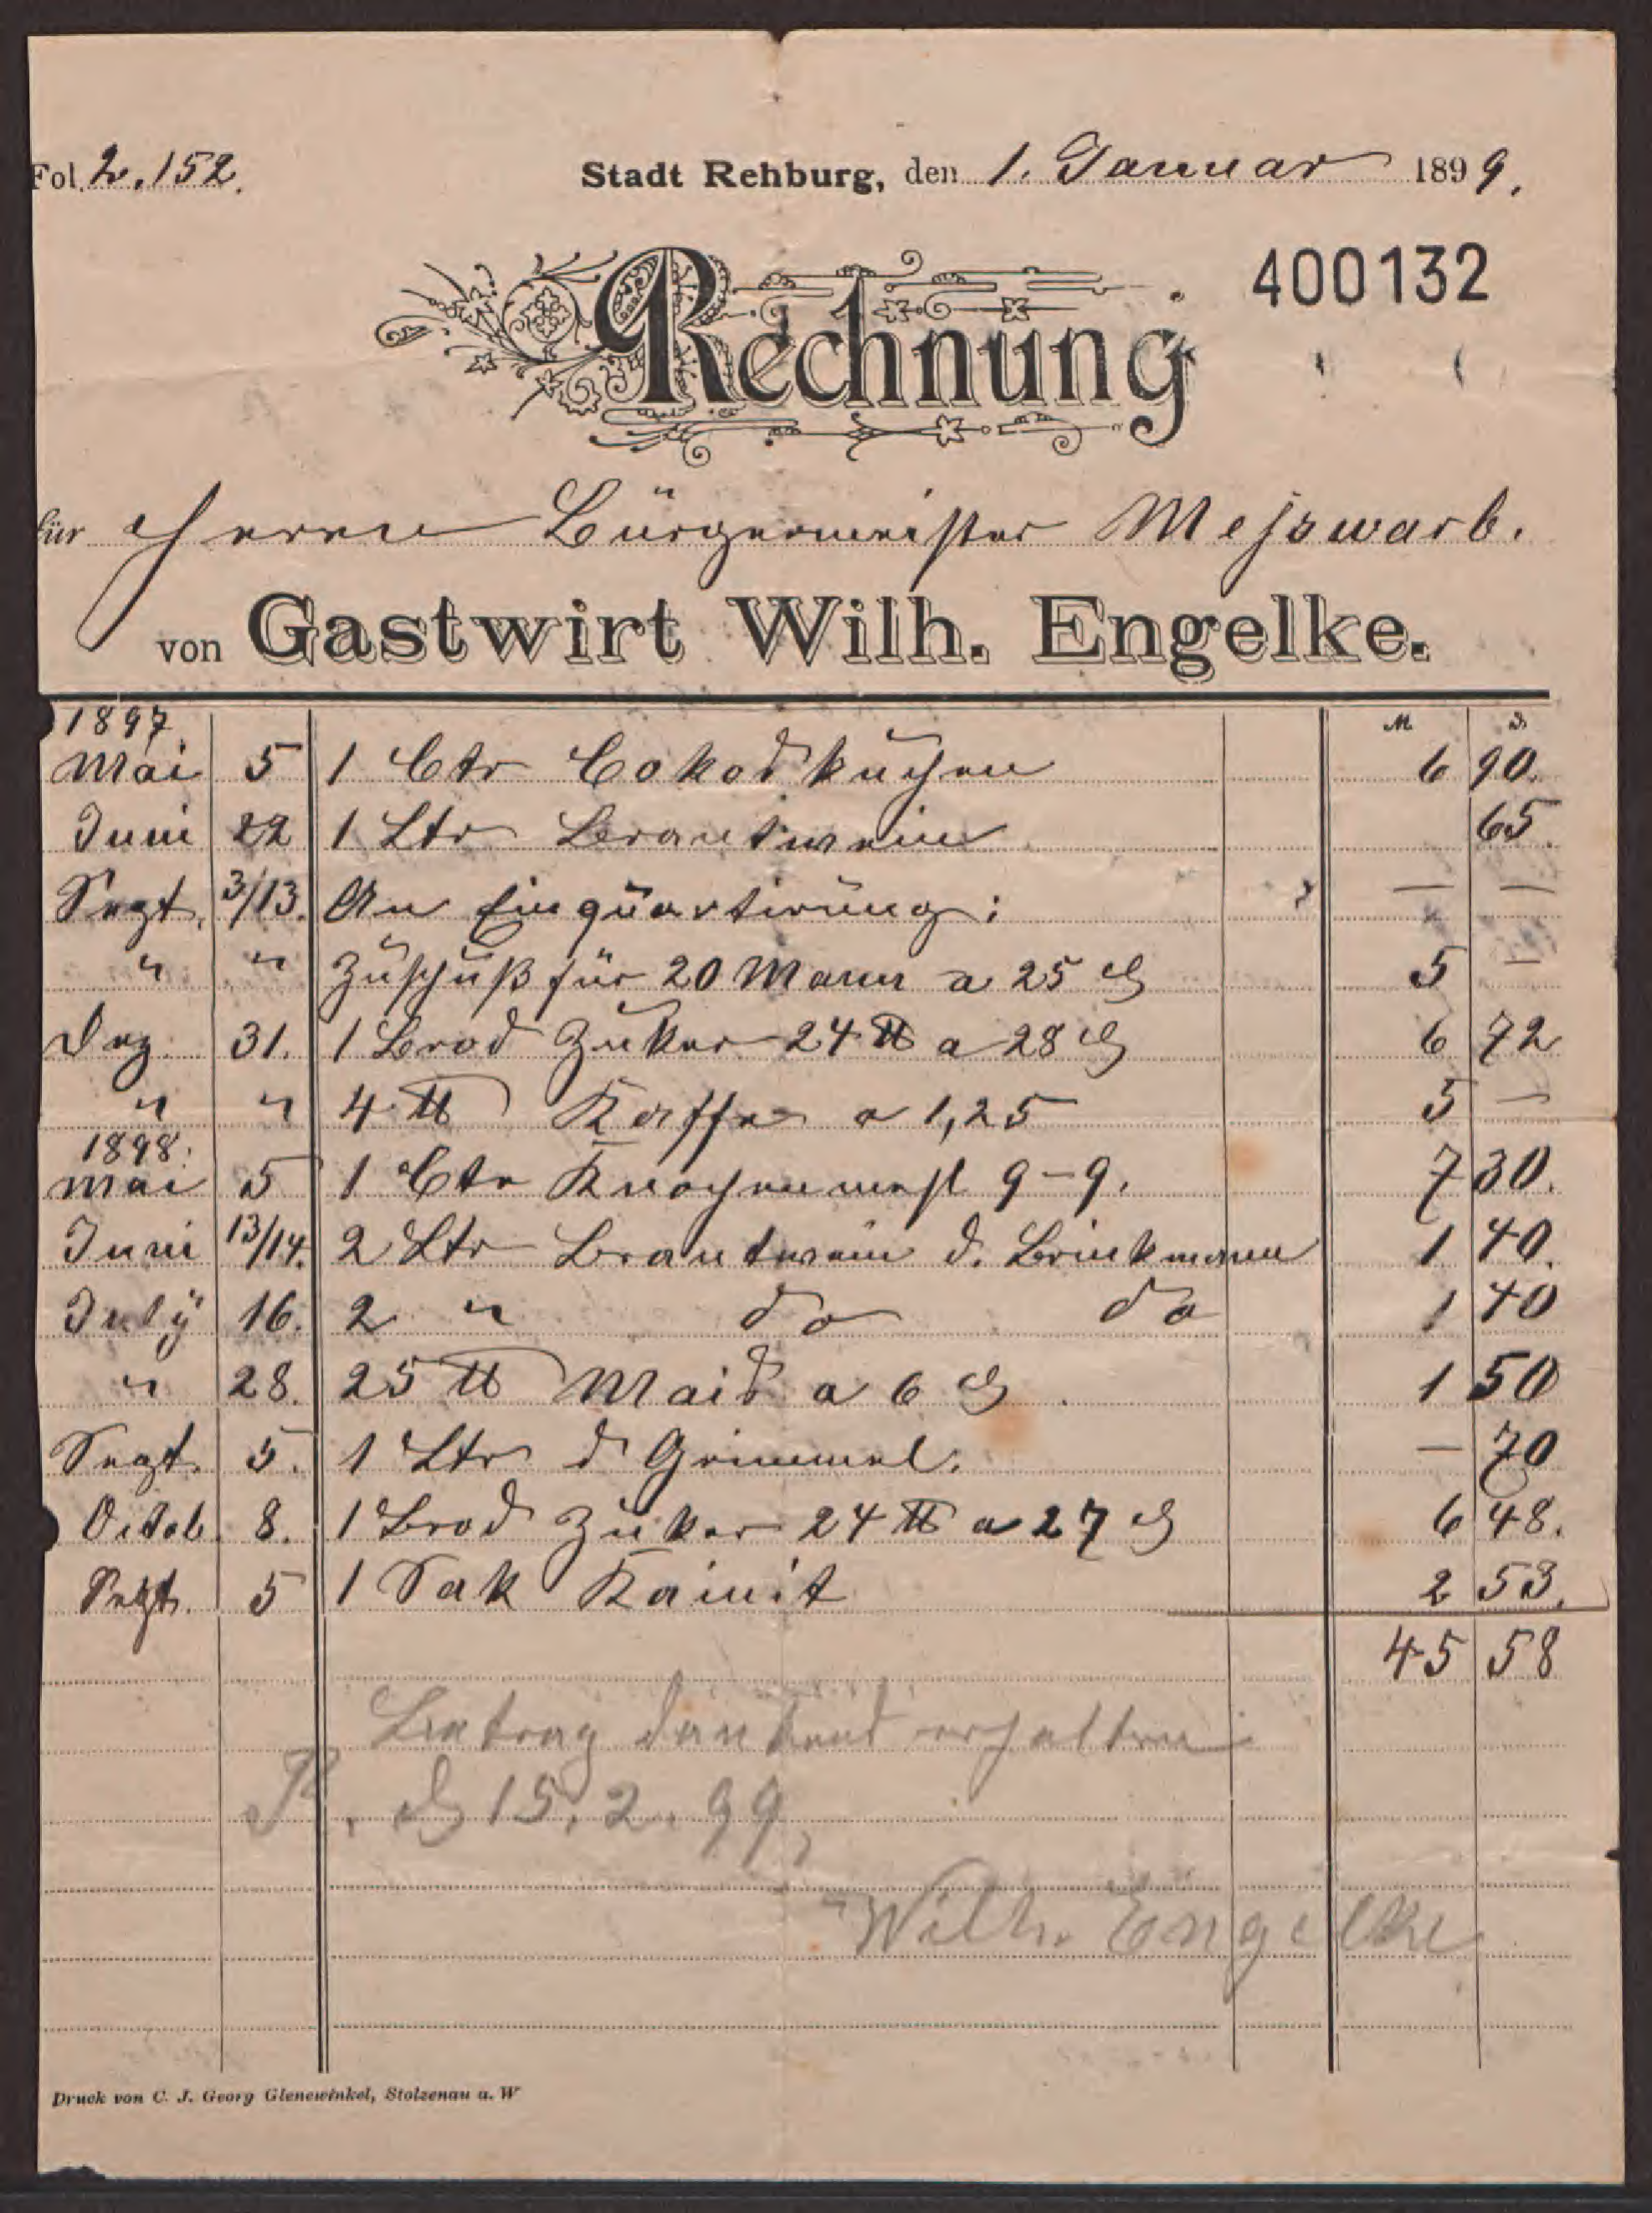 Fol. 2. 152.
Stadt Rehburg, den 1. Januar 1899.
400132
Rechnung
für Herrn Bürgermeister Messwarb.
von Gastwirt Wilh. Engelke.
1897. M. ₰
Mai 5 1 Ctr Cokoskuchen 6 90.
Juni 22 1 Ltr Brantwein 65.
Sept. 3/13. An Einquartirung: — —
" " Zuschuß für 20 Mann a 25 ₰ 5 —
Dez. 31. 1 Brod Zuker 24 ℔ a 28 ₰ 6 72
" " 4 ℔ Kaffe a 1,25 5 —
1898.
Mai 5 1 Ctr Knochenmehl 9-9. 7 30.
Juni 13/14. 2 Ltr Brantwein d. Brinkmann 1 40.
July 16. 2 " do do 1 40
" 28. 25 ℔ Mais a 6 ₰ 1 50
Sept. 5. 1 Ltr d Grimmel. — 70
Octob. 8. 1 Brod Zuker 24 ℔ a 27 ₰ 6 48.
Sept. 5 1 Sak Kainit 2 53.
45 58
Betrag dankend erhalten
R. d 15. 2. 99.
Wilh. Engelke
Druck von C. J. Georg Glenewinkel, Stolzenau a. W